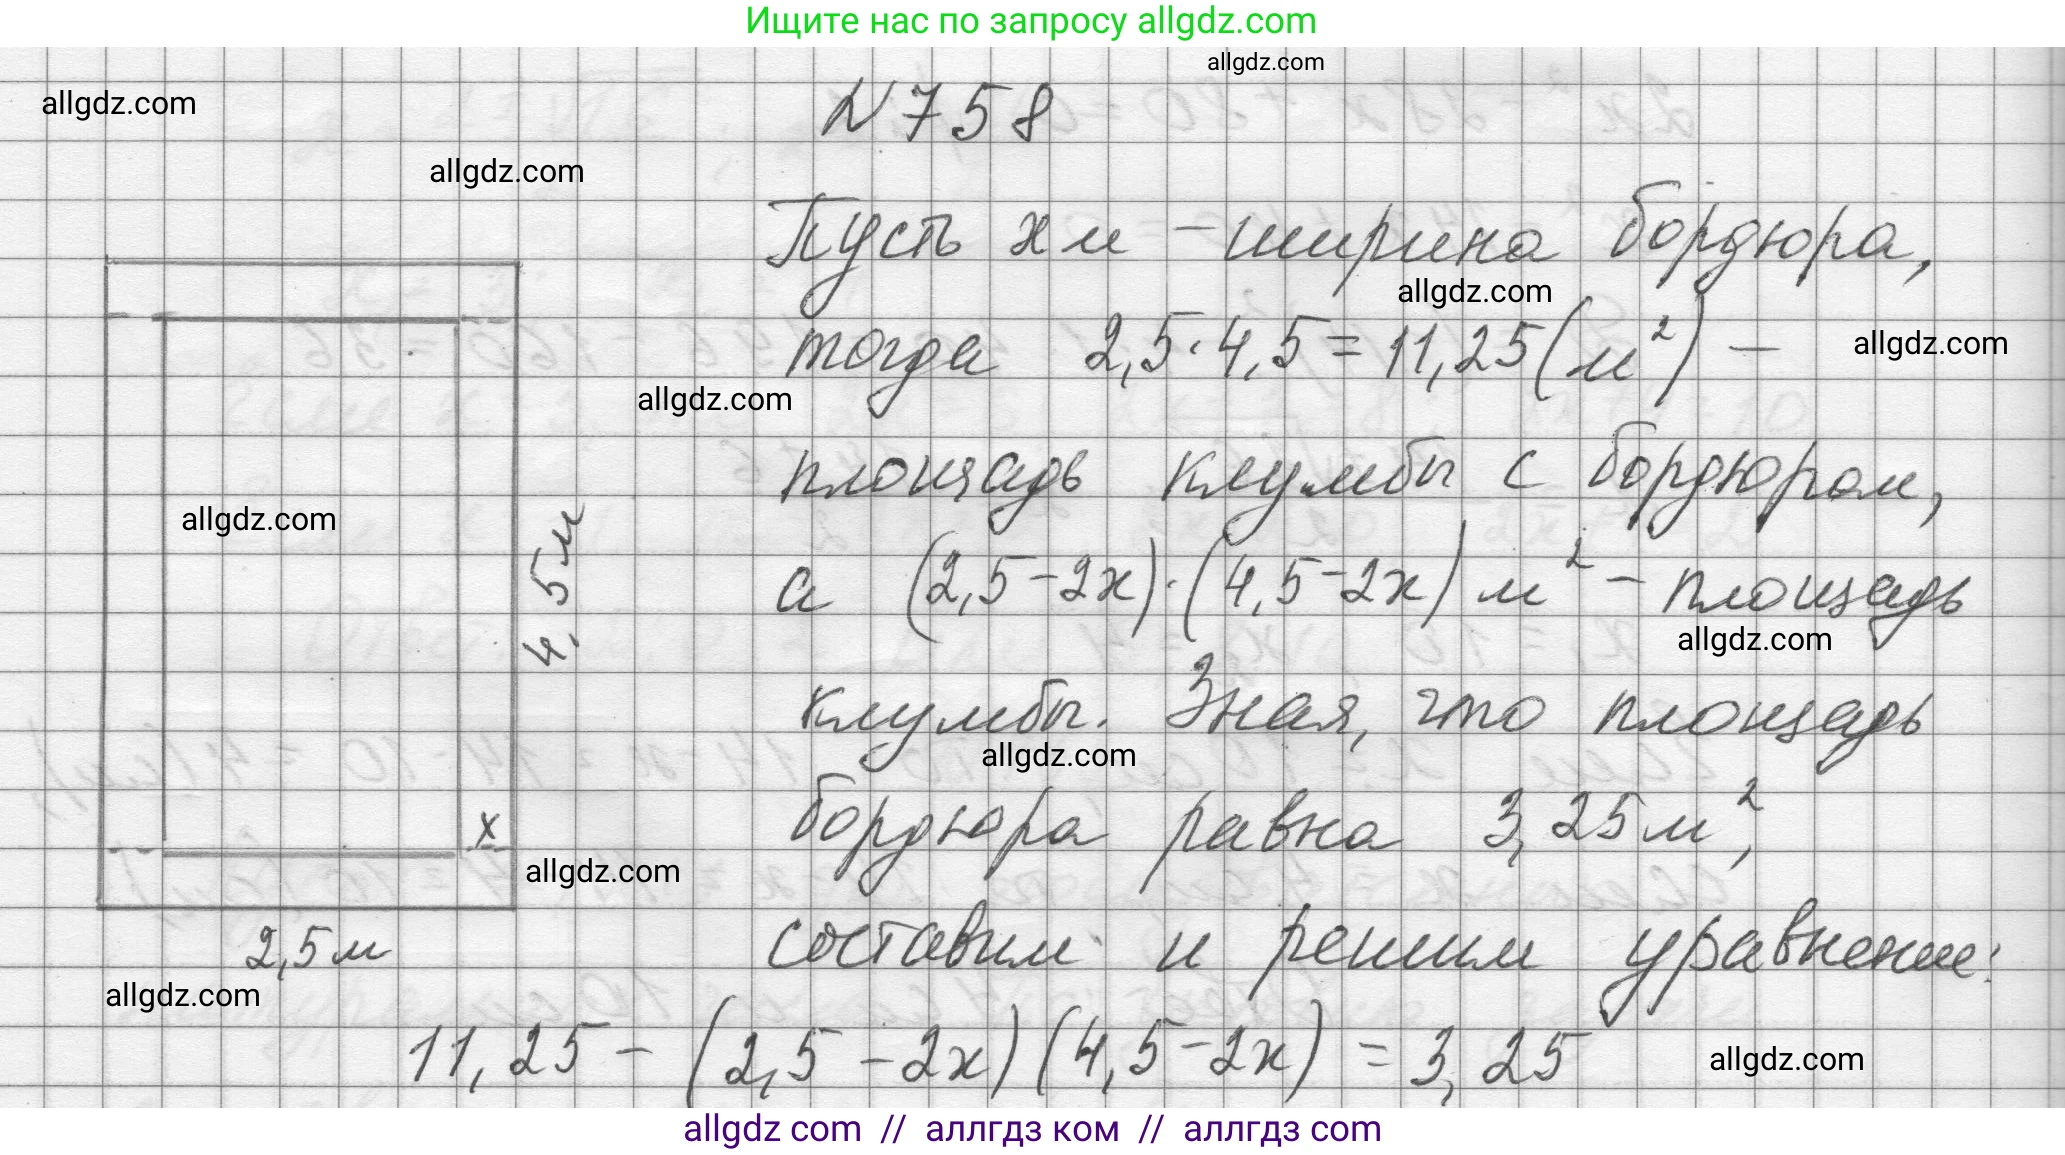 Ищите нас по запросу allgdz.com
allgdz.com
allgdz.com
N 758
allgdz.com
Пусть х м - ширина бордюра,
allgdz.com
тогда 2,5·4,5=11,25(м²) -
allgdz.com
allgdz.com
площадь клумбы с бордюром,
allgdz.com
4,5м
а (2,5-2х)·(4,5-2х) м² - площадь
allgdz.com
клумбы. Зная, что площадь
allgdz.com
бордюра равна 3,25м²,
х
allgdz.com
2,5м
составим и решим уравнение:
allgdz.com
11,25 - (2,5-2х)(4,5-2х) = 3,25
allgdz.com
allgdz com // аллгдз ком // аллгдз com